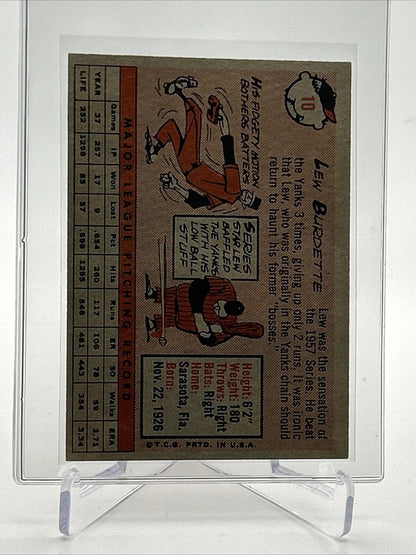 10
LEW BURDETTE
Lew was the sensation of
the 1957 Series. He beat
the Yanks 3 times, giving up only 2 runs. It was ironic
that Lew, who was originally in the Yanks chain should
return to haunt his former "bosses."
HIS FIDGETY MOTION
BOTHERS BATTERS
SERIES
STAR LEW
BAFFLED
THE YANKS
WITH HIS
LOW BALL
STUFF
Height: 6'2"
Weight: 180
Throws: Right
Bats: Right
Home:
Sarasota, Fla.
Born:
Nov. 22, 1926
© T.C.G. PRTD. IN U.S.A.
MAJOR LEAGUE PITCHING RECORD
Games IP Won Lost Pct Hits Runs ER SO Walks ERA
YEAR 37 257 17 9 .654 260 117 106 78 59 3.71
LIFE 252 1298 85 57 .599 1295 548 481 443 364 3.34